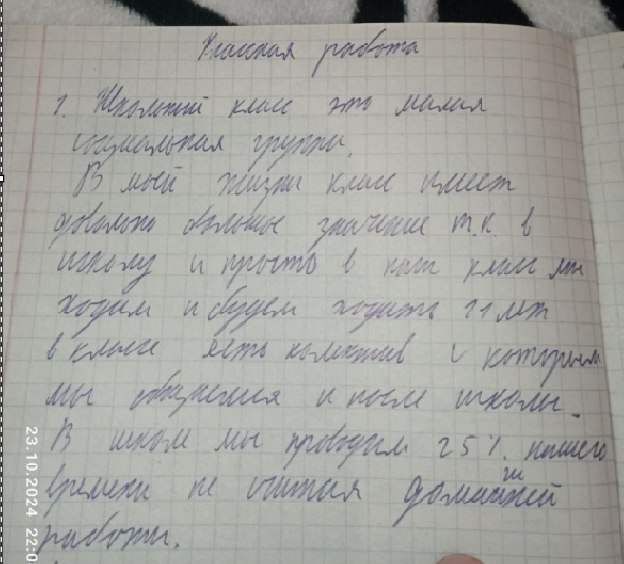 Классная работа
1. Школьный класс это малая
социальная группа.
В моей жизни класс имеет
довольно большое значение т.к. в
школу и просто в наш класс мы
ходим и будем ходить 11 лет
в классе есть колектив с которым
мы общаемся и после школы.
В школе мы проводим 25%. нашего
времени не считая домашней
работы.
23.10.2024 22:0